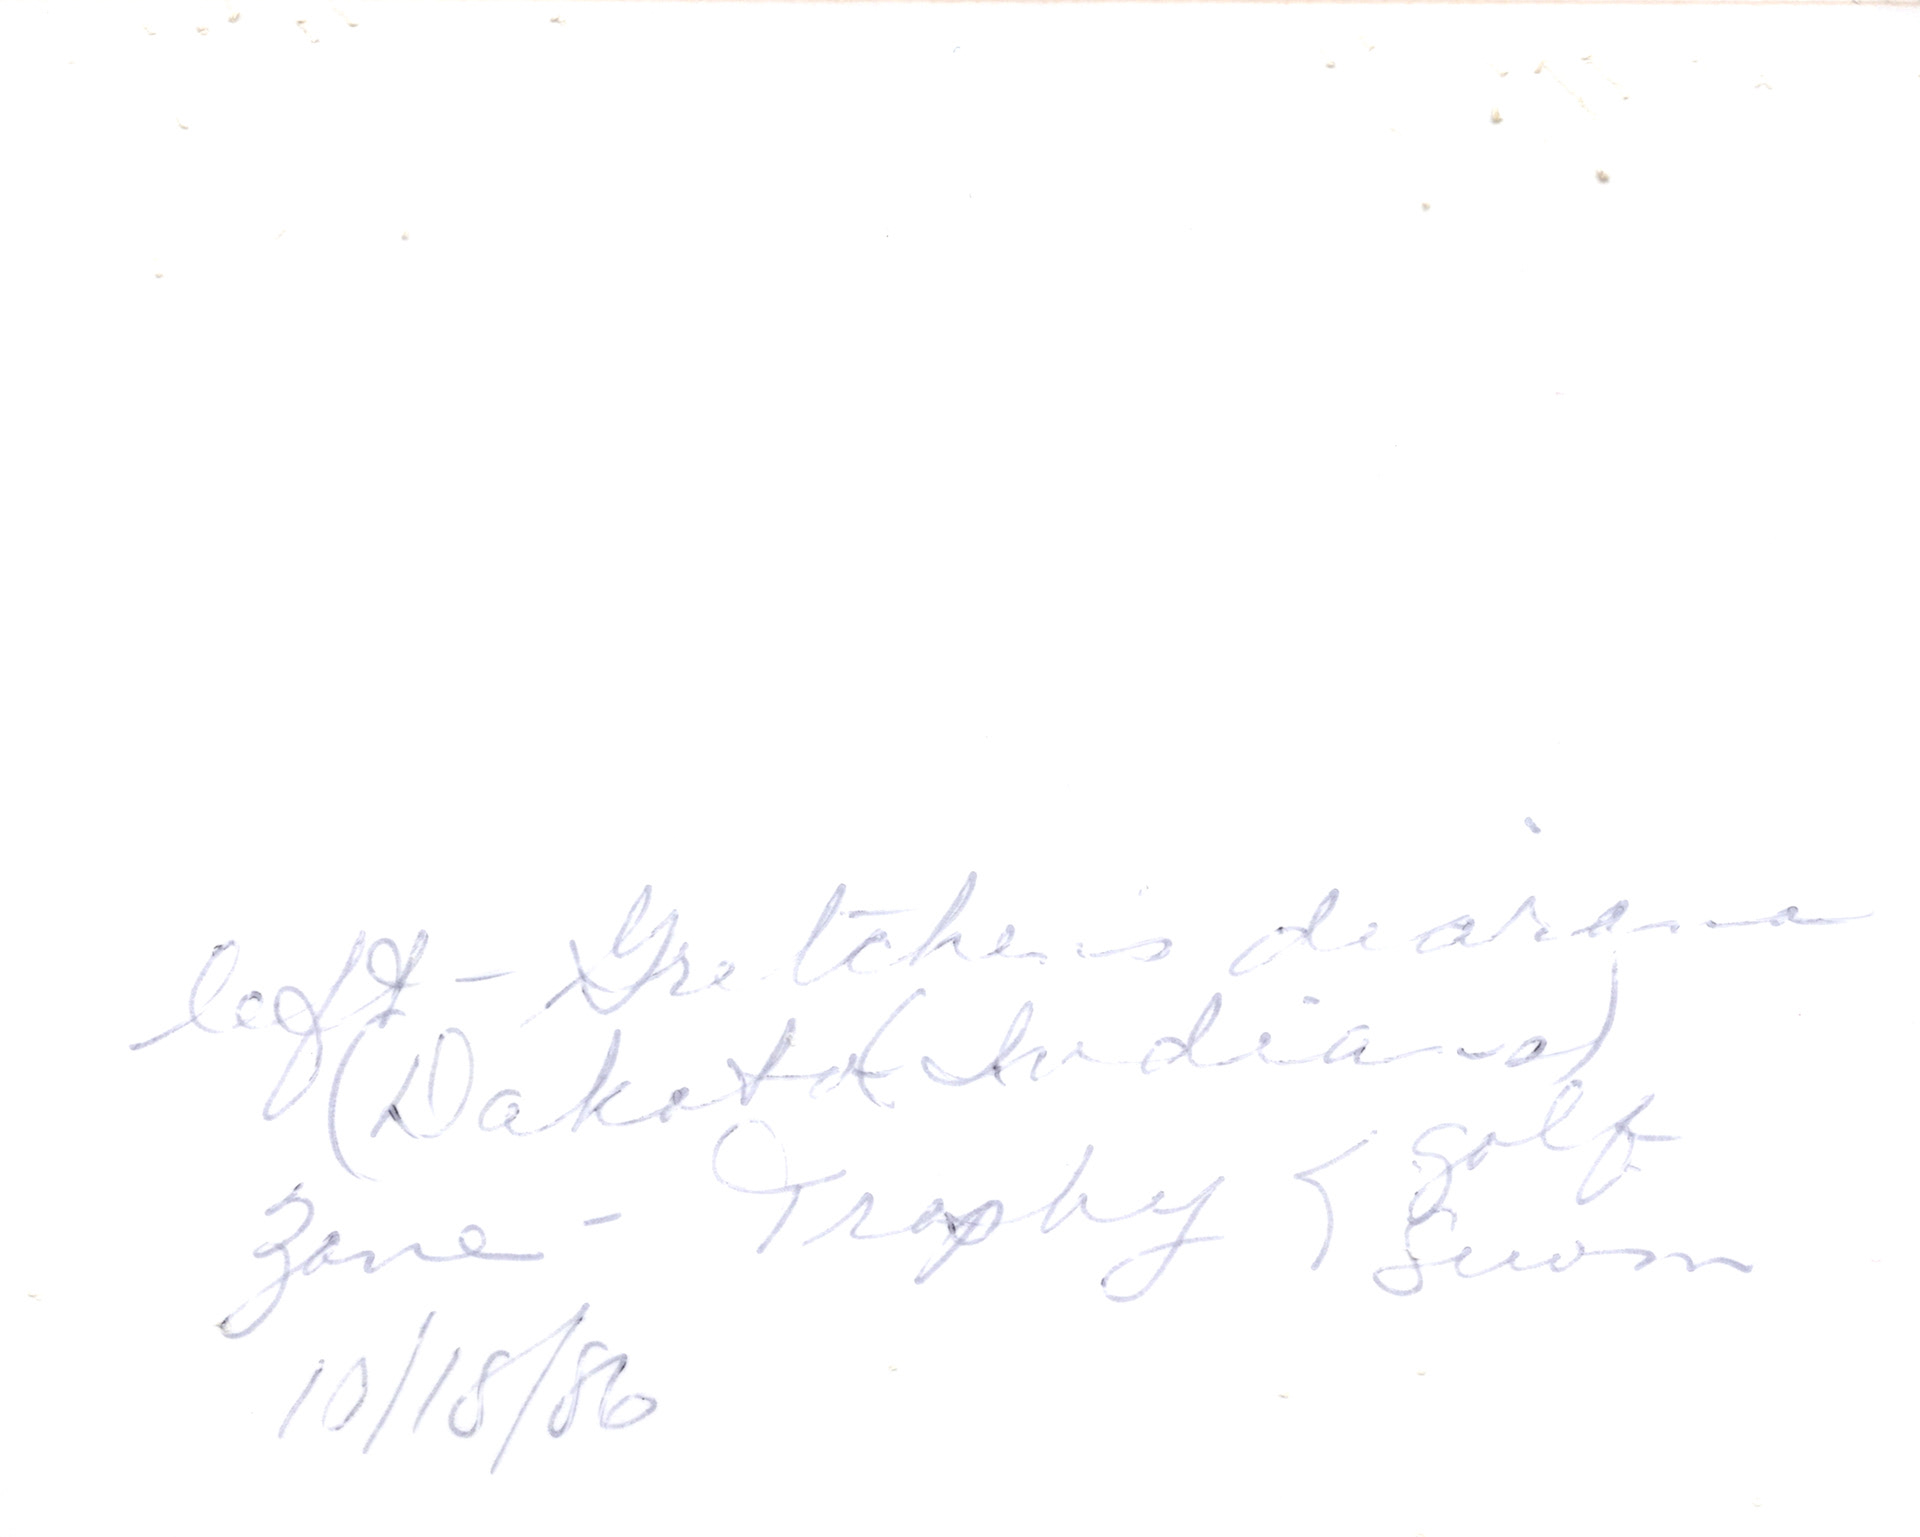 left - Gretchen's diorama
(Dakota Indians)
Zone - Trophy < golf
Swom
10/18/86